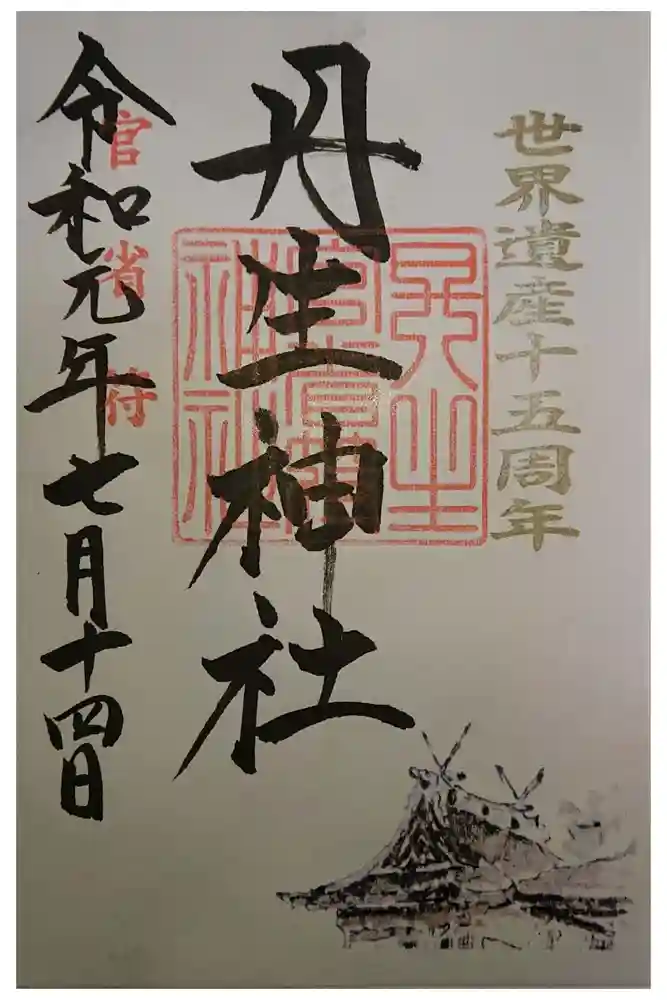 世界遺産十五周年
丹生神社
丹生官省符神社
官省符
令和元年七月十四日